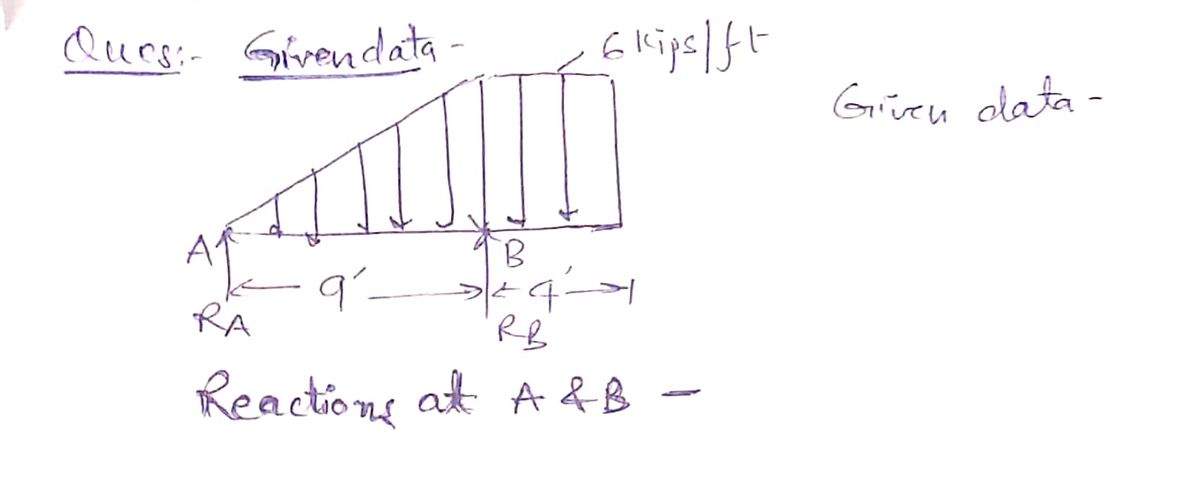 Ques:- Given data -
6 kips/ft
Given data -
A
B
9'
4'
RA
RB
Reactions at A & B -